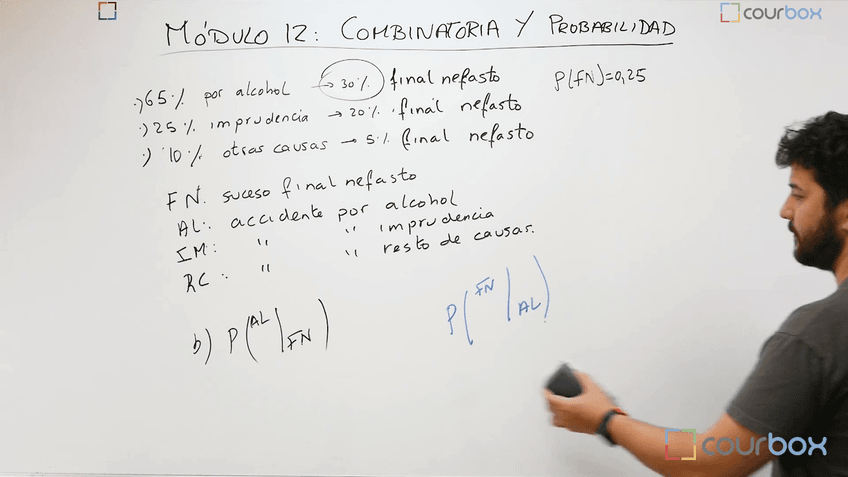 courbox
MÓDULO 12: COMBINATORIA Y PROBABILIDAD
·) 65% por alcohol → 30% final nefasto
P(FN)=0,25
·) 25% imprudencia → 20% final nefasto
·) 10% otras causas → 5% final nefasto
FN: suceso final nefasto
AL: accidente por alcohol
IM: " " imprudencia
RC: " " resto de causas.
b) P(AL|FN)
P(FN|AL)
courbox